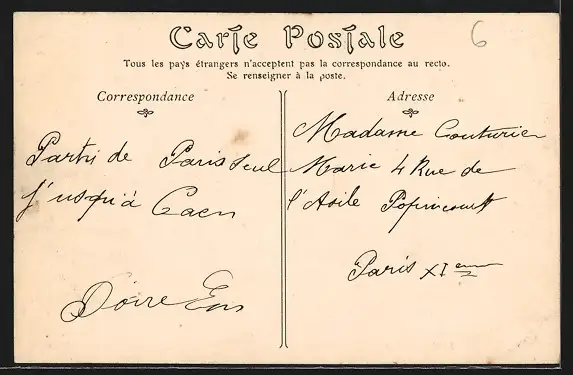 Carte Postale
6
Tous les pays étrangers n'acceptent pas la correspondance au recto.
Se renseigner à la poste.
Correspondance
Partri de Paris seul
j'usqu'à Caen
Adresse
Madame Couturier
Marie 4 Rue de
l'Asile Popincourt
Paris XIeme